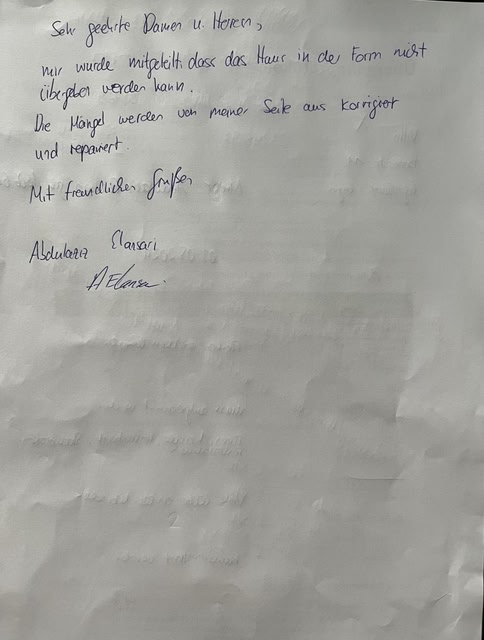 Sehr geehrte Damen u. Herren,
mir wurde mitgeteilt, dass das Haus in der Form nicht
übergeben werden kann.
Die Mängel werden von meiner Seite aus korrigiert
und repariert.
Mit freundlichen Grüßen
Abdulaziz Elansari